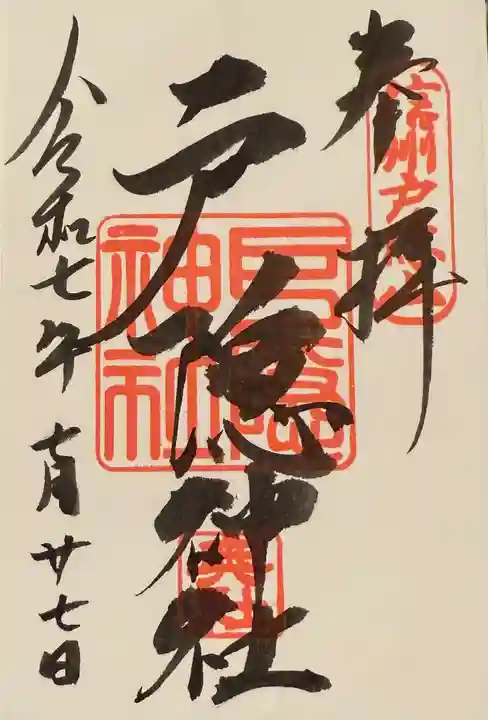 奉拝
信州戸隠山
戸隠神社
戸隠
神社
奥社
令和七年 七月廿七日